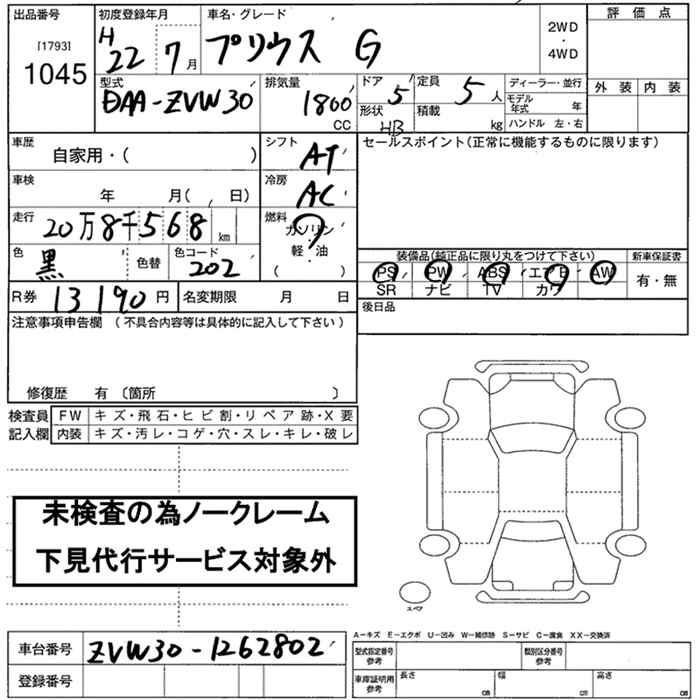 出品番号 初度登録年月 車名・グレード 評価点
[1793]
1045
H22 7月 プリウス G 2WD・4WD
型式 排気量 ドア 定員 ディーラー・並行 外装 内装
DAA-ZVW30 1800 CC 5 5人 モデル年式 年
形状 HB 積載 kg ハンドル 左・右
車歴 シフト セールスポイント(正常に機能するものに限ります)
自家用・( ) AT
車検 冷房
年 月( 、 日) AC
走行 燃料
20万8千568km ガソリン
色 色替 色コード 軽・油
黒 202 ( )
装備品(純正品に限り丸をつけて下さい) 新車保証書
PS PW ABS エアB AW 有・無
SR ナビ TV カワ
R券 13190円 名変期限 月 日 後日品
注意事項申告欄 (不具合内容等は具体的に記入して下さい)
修復歴 有 〔箇所 〕
検査員記入欄 FW キズ・飛石・ヒビ割・リペア跡・X要
内装 キズ・汚レ・コゲ・穴・スレ・キレ・破レ
未検査の為ノークレーム
下見代行サービス対象外
スペア
A−キズ E−エクボ U−凹み W−補修跡 S−サビ C−腐食 XX−交換済
車台番号 ZVW30-1262802 型式指定番号参考 類別区分番号参考
登録番号 車庫証明用参考 長さ cm 幅 cm 高さ cm